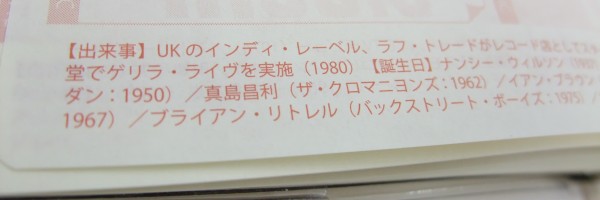 【出来事】UKのインディ・レーベル、ラフ・トレードがレコード店として
堂でゲリラ・ライヴを実施（1980）【誕生日】ナンシー・ウィルソン
ダン：1950）／真島昌利（ザ・クロマニヨンズ：1962）／イアン・ブラウン
1967）／ブライアン・リトレル（バックストリート・ボーイズ：1975）／